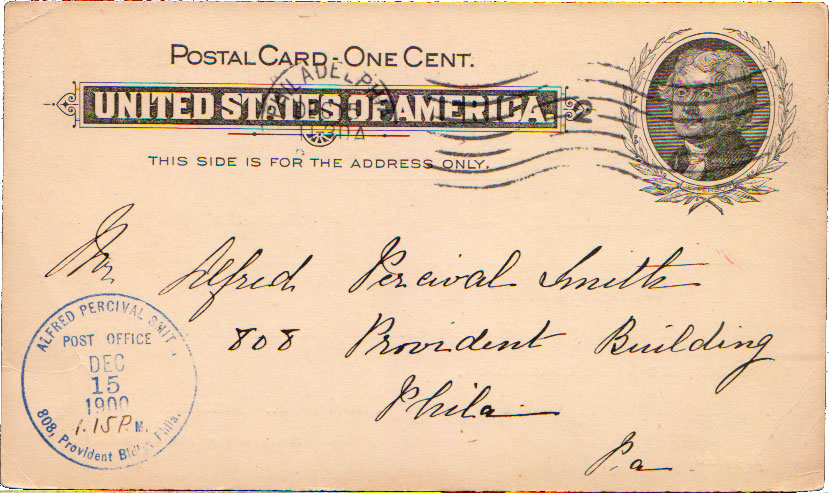 POSTAL CARD - ONE CENT.
PHILADELPHIA
UNITED STATES OF AMERICA.
2
THIS SIDE IS FOR THE ADDRESS ONLY.
Mr Alfred Percival Smith
808 Provident Building
Phila
Pa
ALFRED PERCIVAL SMITH
POST OFFICE
DEC
15
1900
1.15 P. M.
808, Provident Bldg. Phila.